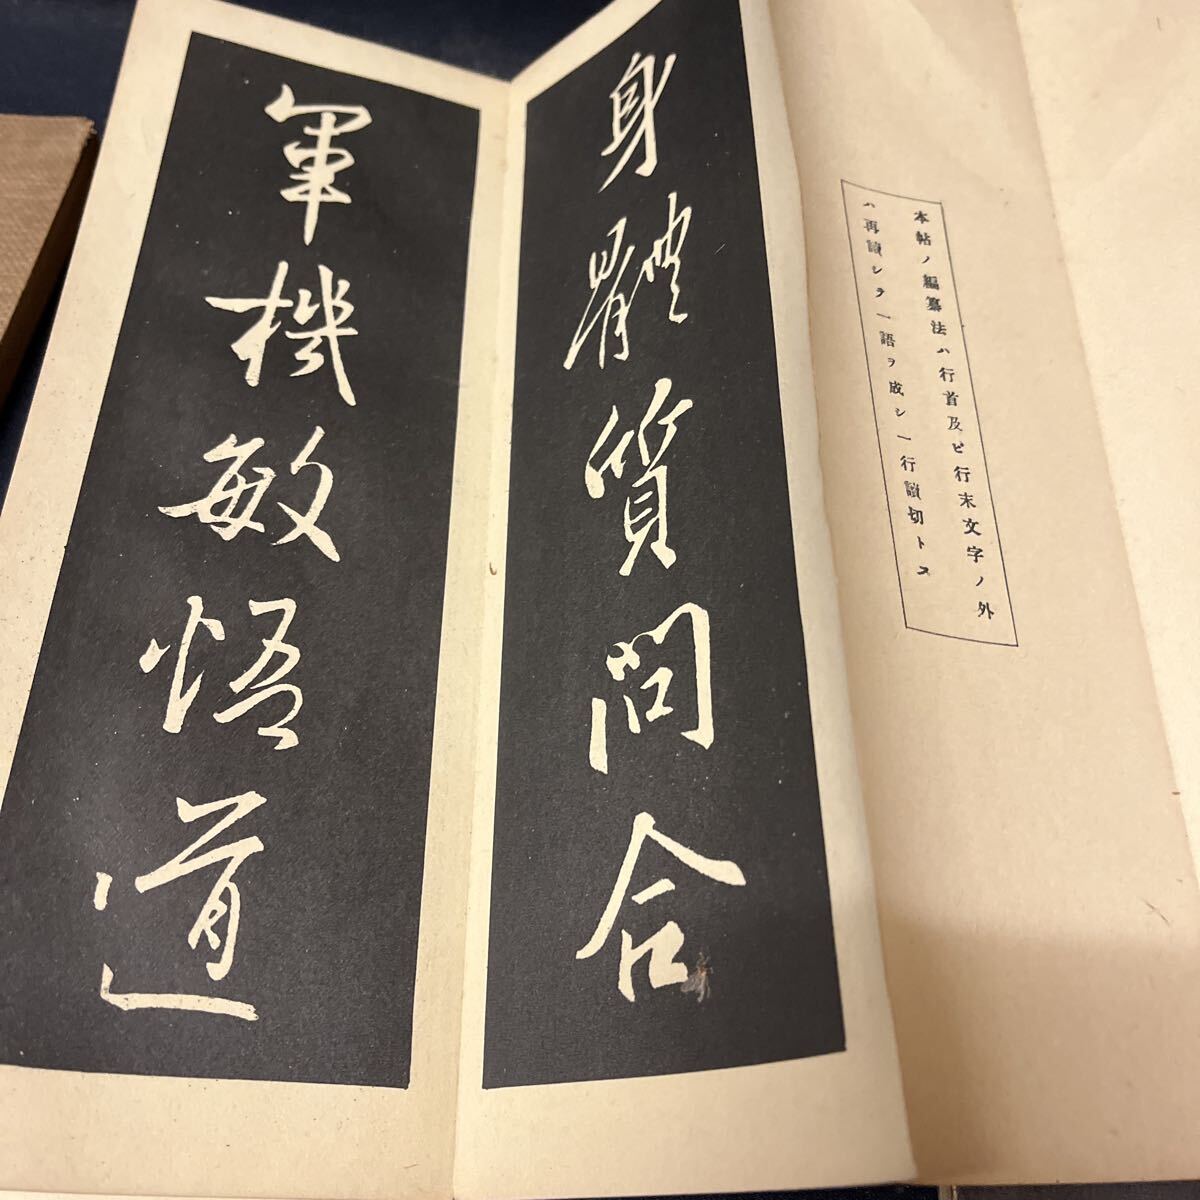 本帖ノ編纂法ハ行首及ビ行末文字ノ外
ハ再讀シテ一語ヲ成シ一行讀切トス
身體質問合
軍機敏悟道